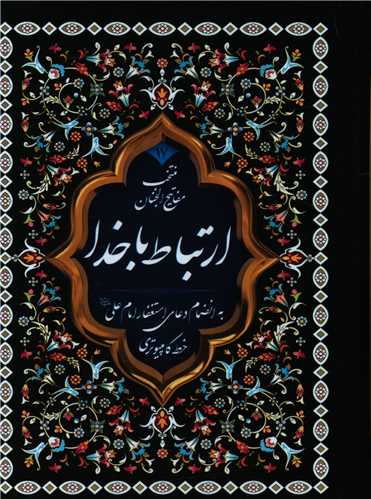 منتخب
مفاتیح الجنان
ارتباط با خدا
به انضمام دعای استغفار امام علی
خط کامپیوتری